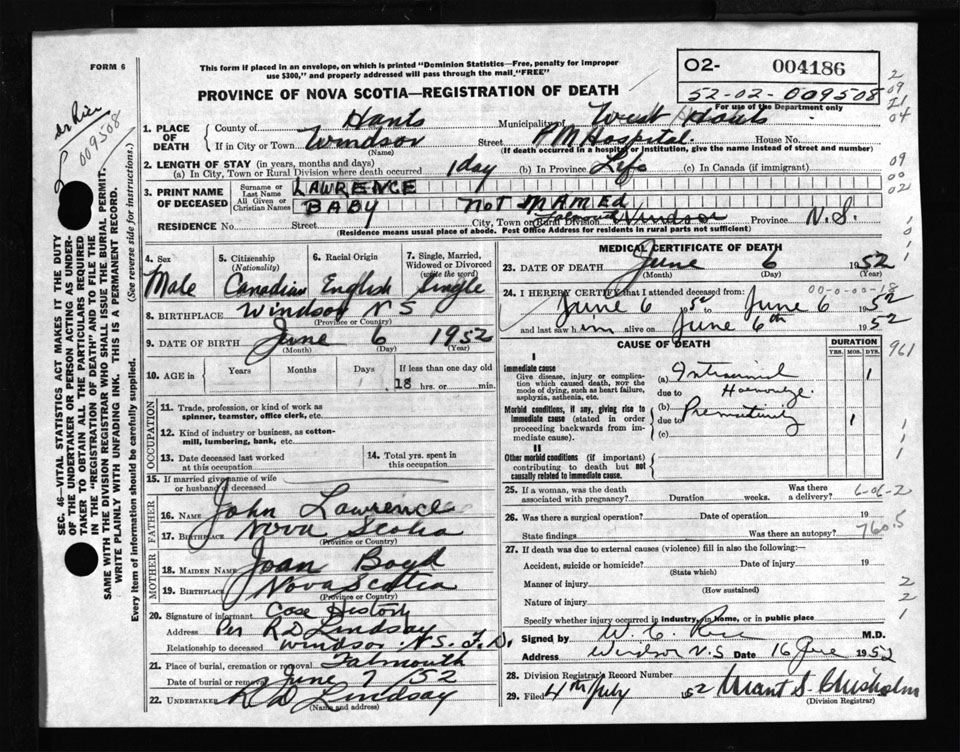 FORM 6
This form if placed in an envelope, on which is printed "Dominion Statistics—Free, penalty for improper
use $300," and properly addressed will pass through the mail "FREE"
O2- 004186
52-02-009508
For use of the Department only
PROVINCE OF NOVA SCOTIA—REGISTRATION OF DEATH
dr Rice
009508
2
09
21
04
1. PLACE OF DEATH
County of Hants Municipality of West Hants
If in City or Town Windsor Street P M Hospital House No.
(Name) (If death occurred in a hospital or institution, give the name instead of street and number)
2. LENGTH OF STAY (in years, months and days)
(a) In City, Town or Rural Division where death occurred 1 day (b) In Province Life (c) In Canada (if immigrant)
09
00
02
3. PRINT NAME OF DECEASED
Surname or Last Name LAWRENCE
All Given or Christian Names BABY NOT MAMEd
RESIDENCE No. Street City, Town or Rural Division Falmouth Windsor Province N.S.
(Residence means usual place of abode. Post Office Address for residents in rural parts not sufficient)
4. Sex Male
5. Citizenship (Nationality) Canadian
6. Racial Origin English
7. Single, Married, Widowed or Divorced (write the word) Single
8. BIRTHPLACE Windsor N S
(Province or Country)
9. DATE OF BIRTH June 6 1952
(Month) (Day) (Year)
10. AGE in Years Months Days If less than one day old
18 hrs. or min.
OCCUPATION
11. Trade, profession, or kind of work as spinner, teamster, office clerk, etc.
12. Kind of industry or business, as cotton-mill, lumbering, bank, etc.
13. Date deceased last worked at this occupation
14. Total yrs. spent in this occupation
15. If married give name of wife or husband of deceased
FATHER
16. Name John Lawrence
17. Birthplace Nova Scotia
(Province or Country)
MOTHER
18. MAIDEN NAME Joan Boyd
19. BIRTHPLACE Nova Scotia
(Province or Country)
20. Signature of informant Case History
Address Per R D Lindsay
Relationship to deceased Windsor N.S. F.D.
21. Place of burial, cremation or removal Falmouth
Date of burial or removal June 7/52
22. UNDERTAKER R D Lindsay
(Name and address)
MEDICAL CERTIFICATE OF DEATH
23. DATE OF DEATH June 6 1952
(Month) (Day) (Year)
24. I HEREBY CERTIFY that I attended deceased from: 00-0-00-18
June 6 1952 to June 6 1952
and last saw him alive on June 6th 1952
CAUSE OF DEATH DURATION
YRS. MOS. DYS.
961
I
Immediate cause
Give disease, injury or complication which caused death, not the mode of dying, such as heart failure, asphyxia, asthenia, etc.
(a) 1
due to
Morbid conditions, if any, giving rise to immediate cause (stated in order proceeding backwards from immediate cause).
(b) Prematurity 1
due to
(c)
II
Other morbid conditions (if important) contributing to death but not causally related to immediate cause.
25. If a woman, was the death associated with pregnancy? Duration weeks. Was there a delivery? 6-06-2
26. Was there a surgical operation? Date of operation 19
State findings Was there an autopsy?
760.5
27. If death was due to external causes (violence) fill in also the following:—
Accident, suicide or homicide? Date of injury 19
(State which)
Manner of injury
(How sustained)
Nature of injury
Specify whether injury occurred in industry, in home, or in public place
2
2
1
Signed by W. C. Rice M.D.
Address Windsor N.S Date 16 June 1952
28. Division Registrar's Record Number
29. Filed 4th July 1952 Grant S. Chisholm
(Division Registrar)
SEC. 46—VITAL STATISTICS ACT MAKES IT THE DUTY
OF THE UNDERTAKER OR PERSON ACTING AS UNDERTAKER TO OBTAIN ALL THE PARTICULARS REQUIRED
IN THE "REGISTRATION OF DEATH" AND TO FILE THE
SAME WITH THE DIVISION REGISTRAR WHO SHALL ISSUE THE BURIAL PERMIT.
WRITE PLAINLY WITH UNFADING INK. THIS IS A PERMANENT RECORD.
Every item of information should be carefully supplied. (See reverse side for instructions.)